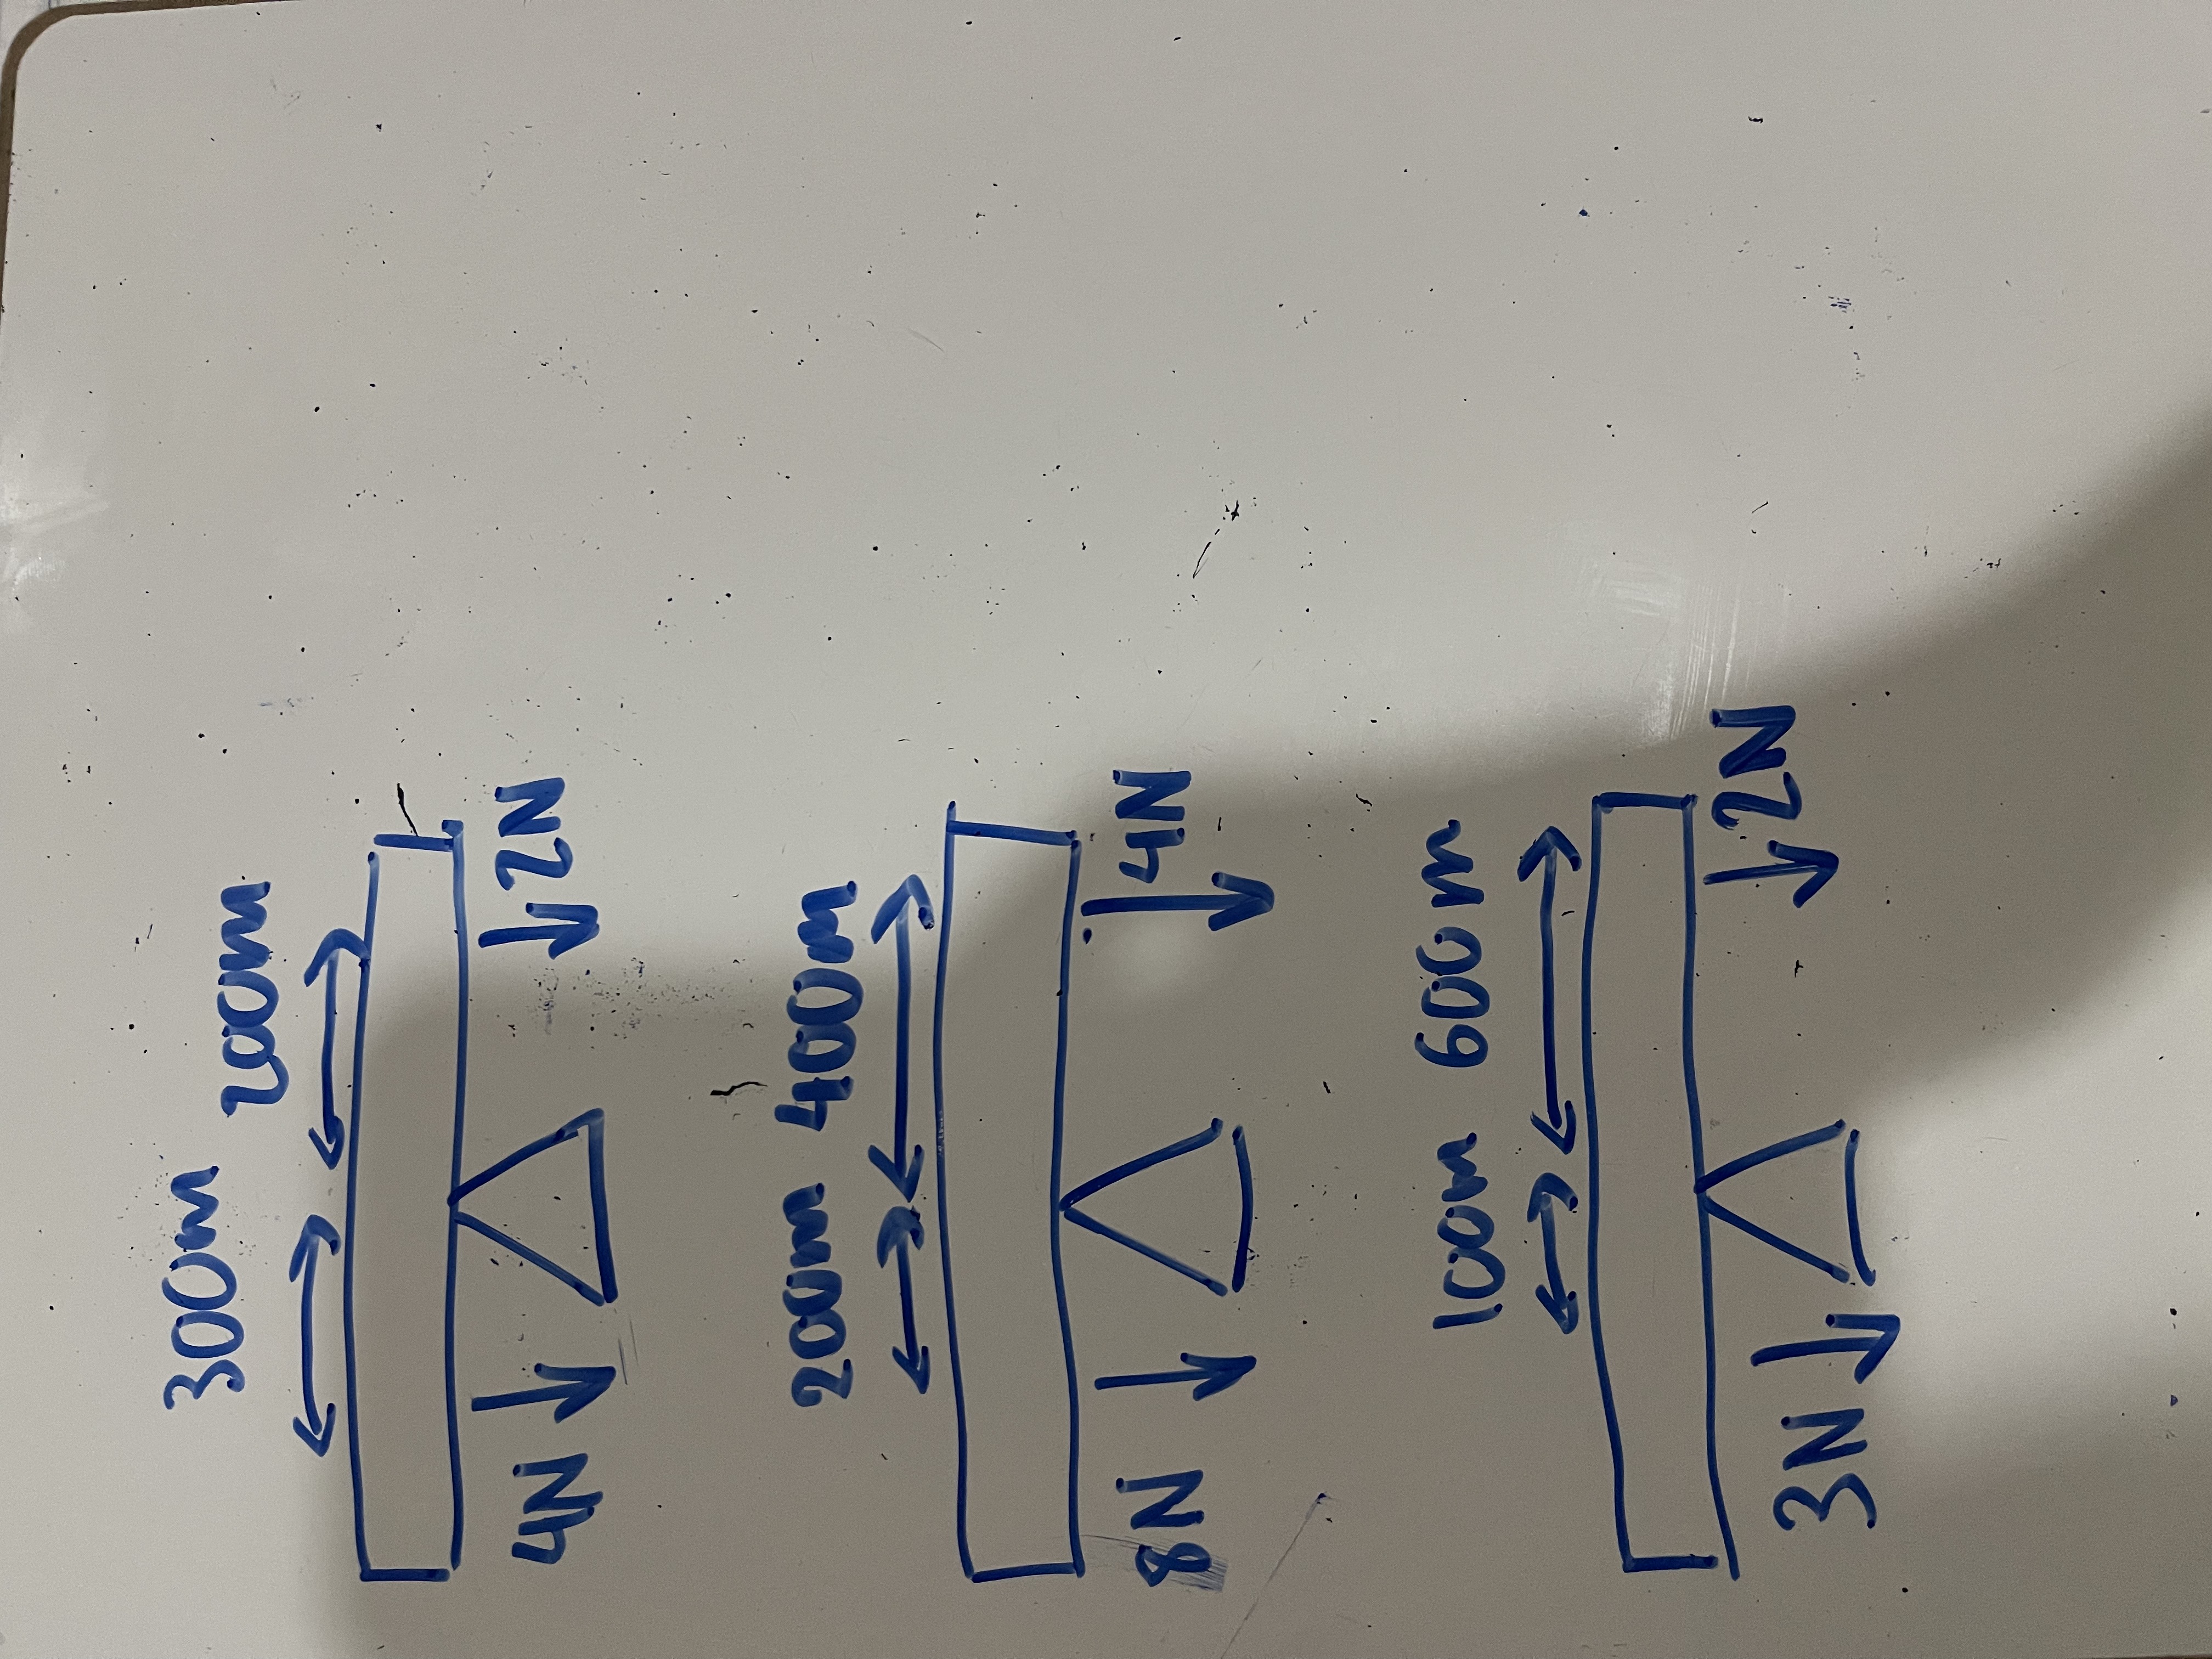 300m 200m
4N 2N
200m 400m
8N 4N
100m 600m
3N 2N